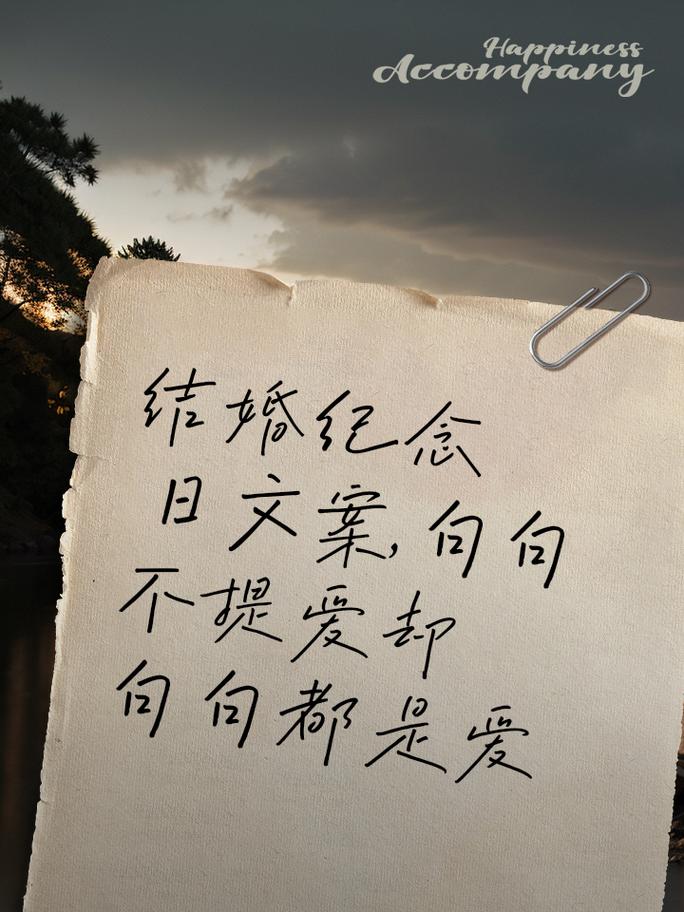 Happiness
Accompany
结婚纪念
日文案,句句
不提爱却
句句都是爱